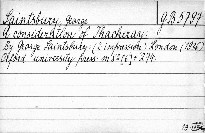 Saintsbury, George
9B5797
A consideration of Thackeray.
By George Saintsbury. (2 impression). London, (1940)
Oxford university press. m8° [6] + 274.